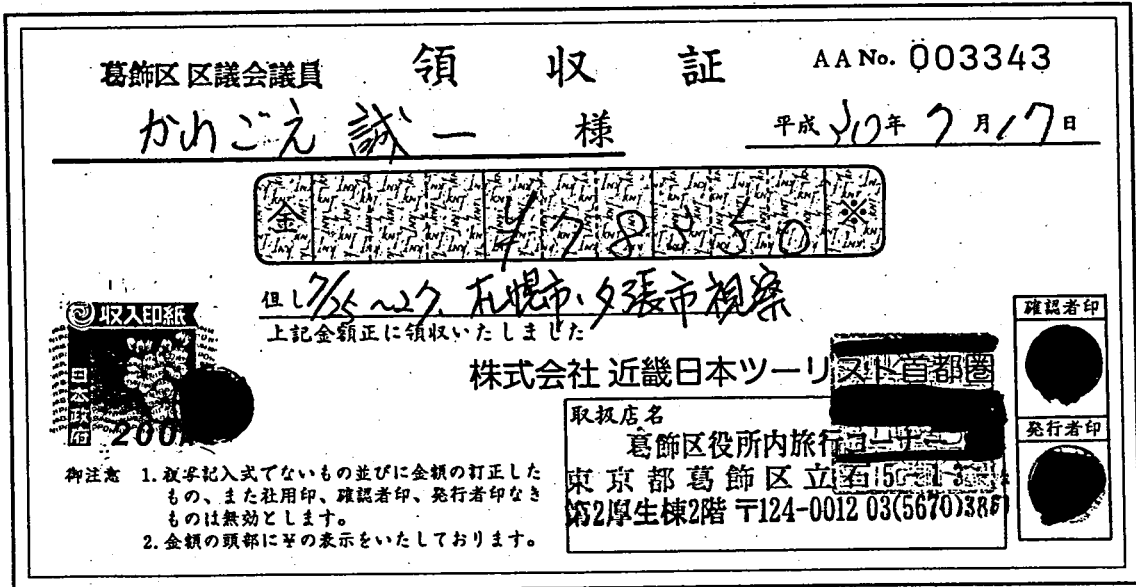 葛飾区 区議会議員 領収証 AA No. 003343
かわごえ 誠一 様 平成30年7月17日
金 ¥78250 ※
但し 7/25~27、札幌市、夕張市視察
上記金額正に領収いたしました
収入印紙
日本政府
200
株式会社 近畿日本ツーリスト首都圏
取扱店名
葛飾区役所内旅行コーナー
東京都葛飾区立石5-13
第2厚生棟2階 〒124-0012 03(5670)385
確認者印
発行者印
御注意 1. 複写記入式でないもの並びに金額の訂正した
もの、また社用印、確認者印、発行者印なき
ものは無効とします。
2. 金額の頭部に¥の表示をいたしております。